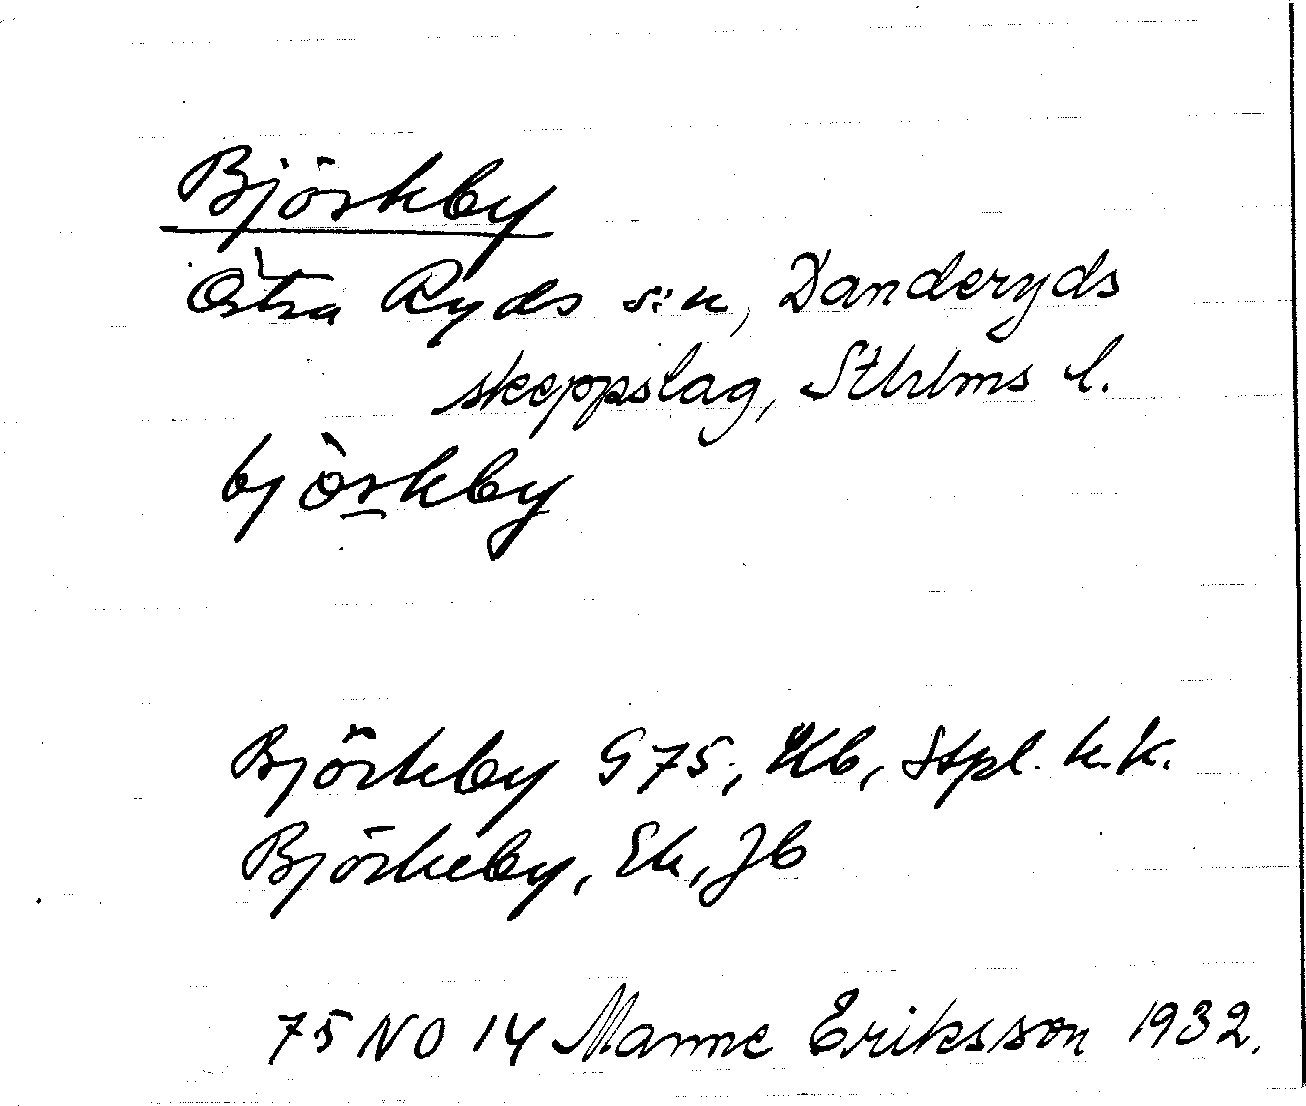 Björkby
Östra Ryds sn, Danderyds
skeppslag, Sthlms l.
björkby
Björkby G75, Kb, Stpl. k.k.
Björkeby, Ek, Jb
75 NO 14 Manne Eriksson 1932.